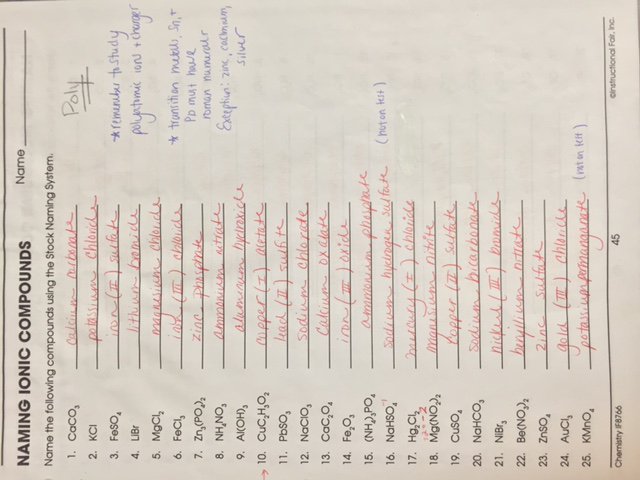 NAMING IONIC COMPOUNDS
Name
Poly
Name the following compounds using the Stock Naming System.
1. CaCO₃ calcium carbonate
2. KCl potassium chloride
3. FeSO₄ iron (II) sulfate
4. LiBr lithium bromide
5. MgCl₂ magnesium chloride
6. FeCl₃ iron (III) chloride
7. Zn₃(PO₄)₂ zinc phosphate
8. NH₄NO₃ ammonium nitrate
9. Al(OH)₃ aluminum hydroxide
→ 10. CuC₂H₃O₂ copper (I) acetate
11. PbSO₃ lead (II) sulfite
12. NaClO₃ sodium chlorate
13. CaC₂O₄ calcium oxalate
14. Fe₂O₃ iron (III) oxide
15. (NH₄)₃PO₄ ammonium phosphate
16. NaHSO₄⁻¹ sodium hydrogen sulfate (not on test)
17. Hg₂Cl₂ mercury (I) chloride
18. Mg(NO₂)₂ magnesium nitrite
19. CuSO₄ copper (II) sulfate
20. NaHCO₃ sodium bicarbonate
21. NiBr₃ nickel (III) bromide
22. Be(NO₃)₂ beryllium nitrate
23. ZnSO₄ zinc sulfate
24. AuCl₃ gold (III) chloride
25. KMnO₄ potassium permanganate (not on test)
* remember to study
polyatomic ions + charges
* transition metals, Sn, +
Pb must have
roman numeral
Exception: zinc, cadmium,
silver
Chemistry IF8766
45
©Instructional Fair, Inc.